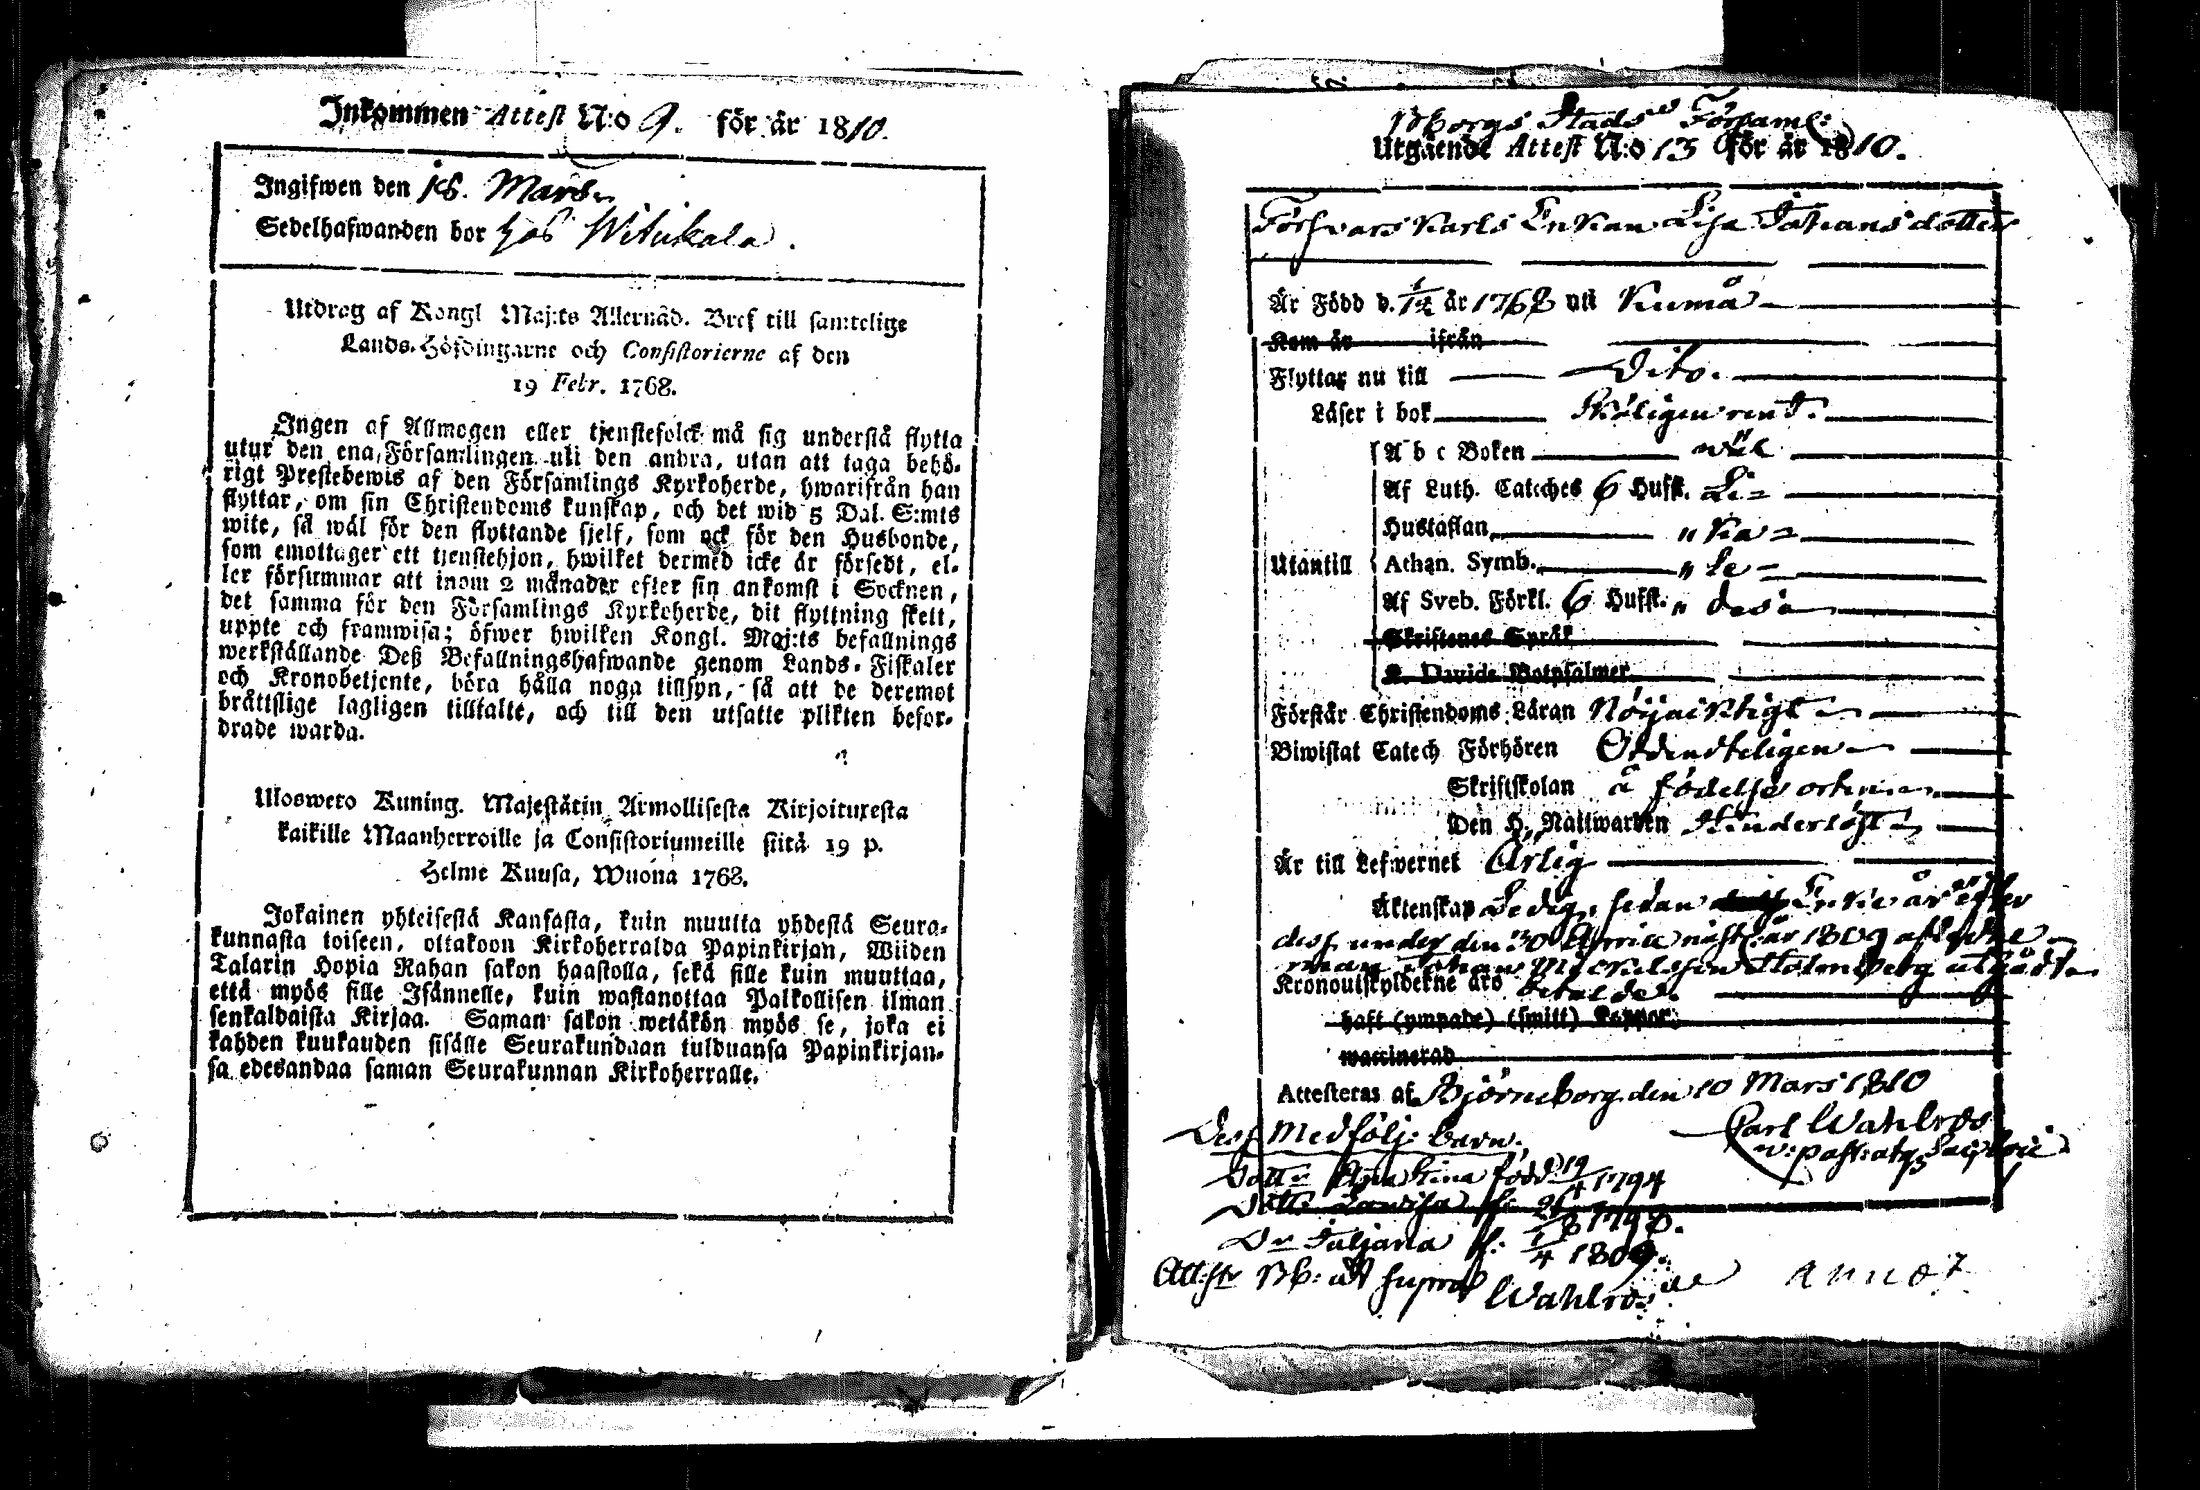 Inkommen Attest N:o 9. för år 1810.
Ingifwen den 18. Mars
Sedelhafwanden bor hos Witukala.
Utdrag af Kongl Maj:ts Allernåd. Bref till samtelige
Lands-Höfdingarne och Consistorierne af den
19 Febr. 1768.
Ingen af Allmogen eller tjenstefolck må sig understå flytta
utur den ena Församlingen uti den andra, utan att taga behö-
rigt Prestebewis af den Församlings Kyrkoherde, hwarifrån han
flyttar, om sin Christendoms kunskap, och det wid 5 Dal. S:mts
wite, så wäl för den flyttande sjelf, som ock för den Husbonde,
som emottager ett tjenstehjon, hwilket dermed icke är försedt, el-
ler försummar att inom 2 månader efter sin ankomst i Socknen,
det samma för den Församlings Kyrkoherde, dit flyttning skett,
uppte och framwisa; öfwer hwilken Kongl. Maj:ts befallnings
werkställande Deß Befallningshafwande genom Lands-Fiskaler
och Kronobetjente, böra hålla noga tillsyn, så att de deremot
bråttslige lagligen tilltalte, och till den utsatte plikten befor-
drade warda.
Uloswero Kuning. Majestätin Armollisesta Kirjoituxesta
kaikille Maanherroille ja Consistoriumeille siitä 19 p.
Helme Kuusa, Wuona 1768.
Jokainen yhteisestä Kansasta, kuin muutta yhdestä Seura-
kunnasta toiseen, ottakoon Kirkoherralda Papinkirjan, Wiiden
Talarin Hopia Rahan sakon haastolla, sekä sille kuin muuttaa,
että myös sille Isännelle, kuin wastanottaa Palkollisen ilman
senkaldaista Kirjaa. Saman sakon wetäkön myös se, joka ei
kahden kuukauden sisälle Seurakundaan tulduansa Papinkirjan-
sa edesandaa saman Seurakunnan Kirkoherralle.
Bborgs Stads Församl:
Utgående Attest N:o 13 för år 1810.
Försvars Karls Enkan Lisa Johansdotter
År Född d. 1/12 år 1768 uti Kumå
Kom år ifrån
Flyttar nu till Dito.
Läser i bok Skäligen rent.
A b c Boken
Af Luth. Cateches 6 Hufst. Li-
Hustaflan " ka-
Utantill Athan. Symb. " Le-
Af Sveb. Förkl. 6 Hufst. " des
Skriftenes Språk
K. Davids Botpsalmer
Förstår Christendoms Läran Nöjaktigt
Biwistat Catech Förhören Ordendteligen
Skriftskolan å födelse orten
Den H. Nattwarden Hinderlöst
Är till Lefwernet Ärlig
Äktenskap Ledig, sedan Enke år efter
dess under den 30 Aprill näst: år 1809 aflidne
man Johan Mickelsson Holmberg utgådt
Kronoutskylderne äro betalde.
haft (ympade) (smitt) Koppor.
waccinerad
Attesteras af Björneborg den 10 Mars 1810
Carl Wahlroos
Dess Medfölj: barn.
Dottr Ana Stina född 19/4 1794
Dottr Lovisa f: 26/8 1798.
Dr Juljana f: 1/4 1809.
Attestr Bb: ut supra Wahlroos
annot